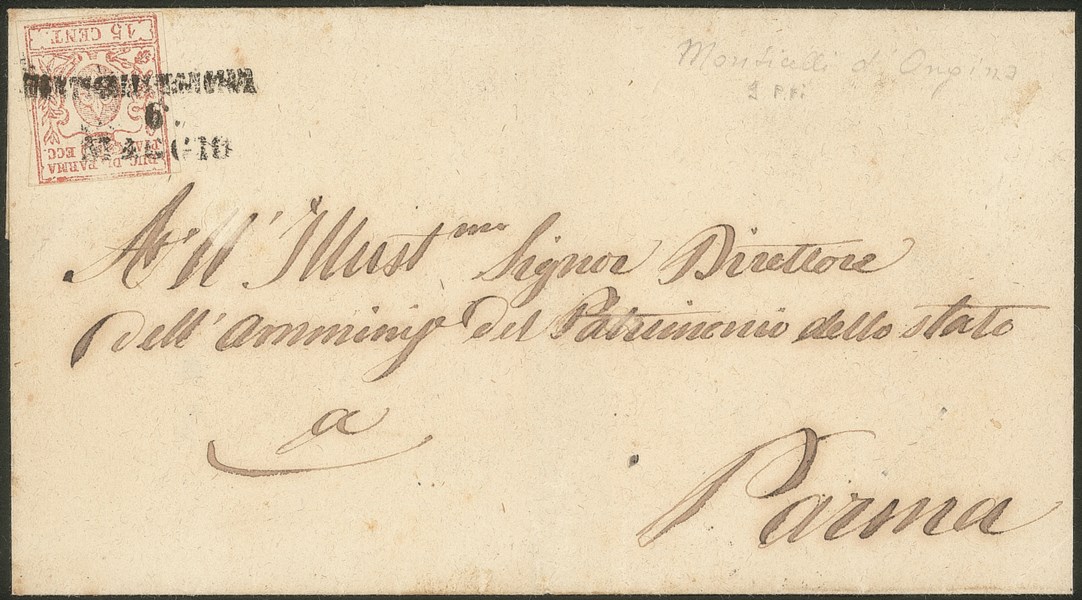 15 CENT.
DUC. DI PARMA
PIAC. ECC.
6
MAGGIO
Monticelli d'Ongina
All' Illust.mo Signor Direttore
dell' Amminis.e del Patrimonio dello stato
a
Parma